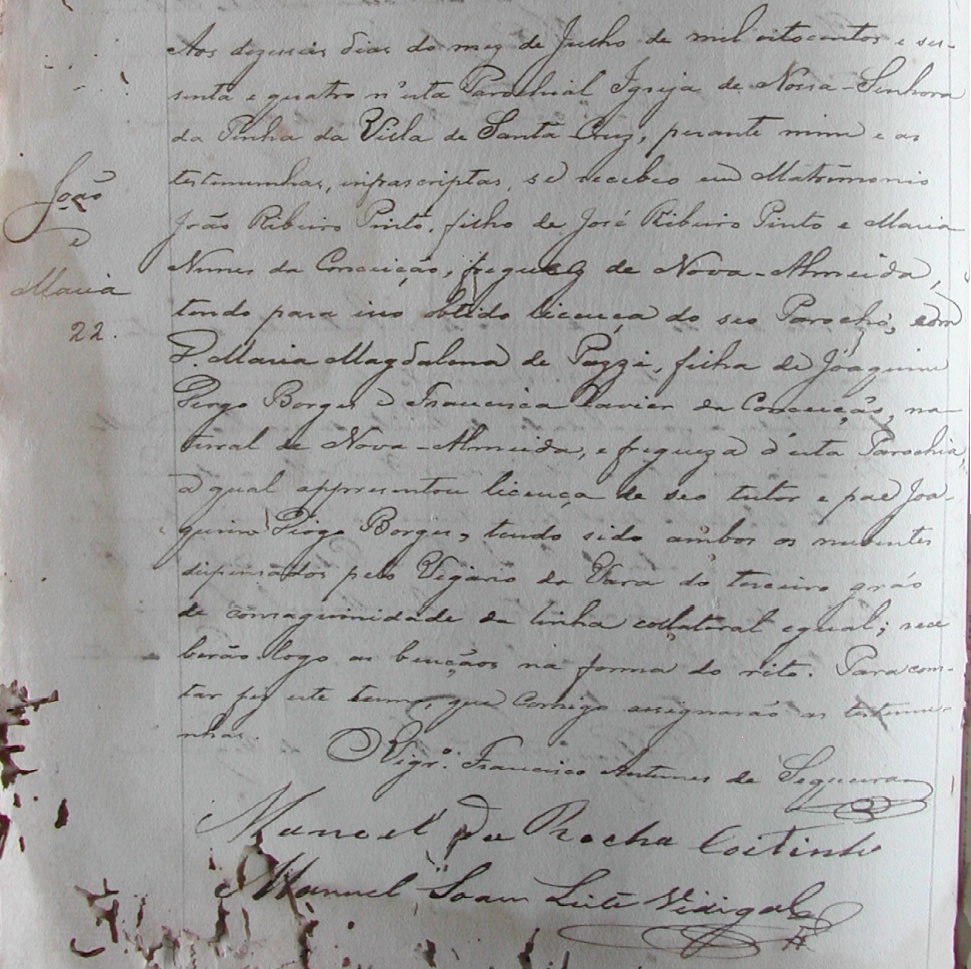 Aos dezeseis dias do mez de Junho de mil oitocentos e ses-
senta e quatro n'esta Parochial Igreja de Nossa-Senhora
da Penha da Villa de Santa-Cruz, perante mim e as
testemunhas, infrascriptas, se recebeo em Matrimonio
João Ribeiro Pinto, filho de José Ribeiro Pinto e Maria
Nunes da Conceição, freguez de Nova-Almeida,
tendo para isso obtido licença do seo Parocho, com
D. Maria Magdalena de Pazzi, filha de Joaquim
Pirogo Borges e Francisca Xavier da Conceição, na-
tural de Nova-Almeida, e fregueza d'esta Parochia,
a qual appresentou licença de seo tutor e pae Joa-
quim Pirogo Borges, tendo sido ambos os nubentes
dispensados pelo Vigario da Vara do terceiro gráo
de consaguinidade da linha collateral egual; rece
berão logo as bençãos na forma do rito. Para cons-
tar fez este termo, que comigo assignarão as testemu-
nhas.
João
e
Maria
22.
Vigr.º Francisco Antunes de Sequeira
Manoel da Rocha Coitinho
Manuel Soares Leite Vidigal